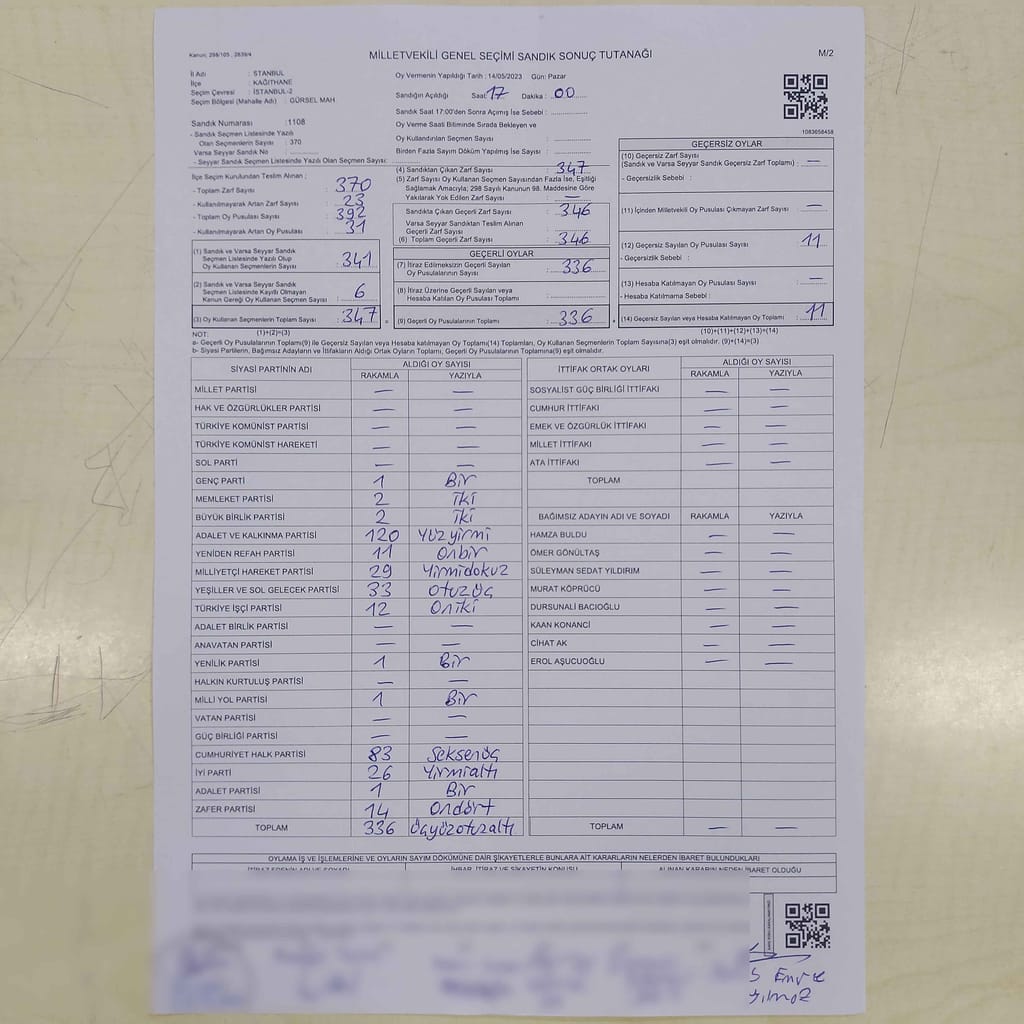 Kanun: 298/105 , 2839/4
MİLLETVEKİLİ GENEL SEÇİMİ SANDIK SONUÇ TUTANAĞI
M/2
İl Adı : STANBUL
İlçe : KAĞITHANE
Seçim Çevresi : İSTANBUL-2
Seçim Bölgesi (Mahalle Adı) : GÜRSEL MAH
Sandık Numarası :1108
- Sandık Seçmen Listesinde Yazılı
Olan Seçmenlerin Sayısı : 370
Varsa Seyyar Sandık No :
- Seyyar Sandık Seçmen Listesinde Yazılı Olan Seçmen Sayısı:
Oy Vermenin Yapıldığı Tarih : 14/05/2023 Gün: Pazar
Sandığın Açıldığı Saat: 17 Dakika : 00
Sandık Saat 17:00'den Sonra Açımış İse Sebebi :
Oy Verme Saati Bitiminde Sırada Bekleyen ve
Oy Kullandırılan Seçmen Sayısı :
Birden Fazla Sayım Döküm Yapılmış İse Sayısı :
1083658458
İlçe Seçim Kurulundan Teslim Alınan ;
- Toplam Zarf Sayısı : 370
- Kullanılmayarak Artan Zarf Sayısı : 23
- Toplam Oy Pusulası Sayısı : 392
- Kullanılmayarak Artan Oy Pusulası : 31
(1) Sandık ve Varsa Seyyar Sandık
Seçmen Listesinde Yazılı Olup
Oy Kullanan Seçmenlerin Sayısı : 341
(2) Sandık ve Varsa Seyyar Sandık
Seçmen Listesinde Kayıtlı Olmayan
Kanun Gereği Oy Kullanan Seçmen Sayısı : 6
(3) Oy Kullanan Seçmenlerin Toplam Sayısı : 347
(1)+(2)=(3)
(4) Sandıktan Çıkan Zarf Sayısı : 347
(5) Zarf Sayısı Oy Kullanan Seçmen Sayısından Fazla İse, Eşitliği
Sağlamak Amacıyla; 298 Sayılı Kanunun 98. Maddesine Göre
Yakılarak Yok Edilen Zarf Sayısı : —
Sandıkta Çıkan Geçerli Zarf Sayısı : 346
Varsa Seyyar Sandıktan Teslim Alınan
Geçerli Zarf Sayısı :
(6) Toplam Geçerli Zarf Sayısı : 346
GEÇERLİ OYLAR
(7) İtiraz Edilmeksizin Geçerli Sayılan
Oy Pusulalarının Sayısı : 336
(8) İtiraz Üzerine Geçerli Sayılan veya
Hesaba Katılan Oy Pusulası Toplamı :
(9) Geçerli Oy Pusulalarının Toplamı : 336
GEÇERSİZ OYLAR
(10) Geçersiz Zarf Sayısı
(Sandık ve Varsa Seyyar Sandık Geçersiz Zarf Toplamı) : —
- Geçersizlik Sebebi :
(11) İçinden Milletvekili Oy Pusulası Çıkmayan Zarf Sayısı : —
(12) Geçersiz Sayılan Oy Pusulası Sayısı : 11
- Geçersizlik Sebebi :
(13) Hesaba Katılmayan Oy Pusulası Sayısı : —
- Hesaba Katılmama Sebebi :
(14) Geçersiz Sayılan veya Hesaba Katılmayan Oy Toplamı : 11
(10)+(11)+(12)+(13)=(14)
NOT:
a- Geçerli Oy Pusulaları Toplamı(9) ile Geçersiz Sayılan veya Hesaba katılmayan Oy Toplamı(14) Toplamları, Oy Kullanan Seçmenlerin Toplam Sayısına(3) eşit olmalıdır. (9)+(14)=(3)
b- Siyasi Partilerin, Bağımsız Adayların ve İttifakların Aldığı Ortak Oyların Toplamı, Geçerli Oy Pusulalarının Toplamına(9) eşit olmalıdır.
SİYASİ PARTİNİN ADI ALDIĞI OY SAYISI
RAKAMLA YAZIYLA
MİLLET PARTİSİ — —
HAK VE ÖZGÜRLÜKLER PARTİSİ — —
TÜRKİYE KOMÜNİST PARTİSİ — —
TÜRKİYE KOMÜNİST HAREKETİ — —
SOL PARTİ — —
GENÇ PARTİ 1 Bir
MEMLEKET PARTİSİ 2 iki
BÜYÜK BİRLİK PARTİSİ 2 iki
ADALET VE KALKINMA PARTİSİ 120 Yüzyirmi
YENİDEN REFAH PARTİSİ 11 Onbir
MİLLİYETÇİ HAREKET PARTİSİ 29 Yirmidokuz
YEŞİLLER VE SOL GELECEK PARTİSİ 33 Otuzüç
TÜRKİYE İŞÇİ PARTİSİ 12 Oniki
ADALET BİRLİK PARTİSİ — —
ANAVATAN PARTİSİ — —
YENİLİK PARTİSİ 1 Bir
HALKIN KURTULUŞ PARTİSİ — —
MİLLİ YOL PARTİSİ 1 Bir
VATAN PARTİSİ — —
GÜÇ BİRLİĞİ PARTİSİ — —
CUMHURİYET HALK PARTİSİ 83 Seksenüç
İYİ PARTİ 26 Yirmialtı
ADALET PARTİSİ 1 Bir
ZAFER PARTİSİ 14 Ondört
TOPLAM 336 üçyüzotuzaltı
İTTİFAK ORTAK OYLARI ALDIĞI OY SAYISI
RAKAMLA YAZIYLA
SOSYALİST GÜÇ BİRLİĞİ İTTİFAKI — —
CUMHUR İTTİFAKI — —
EMEK VE ÖZGÜRLÜK İTTİFAKI — —
MİLLET İTTİFAKI — —
ATA İTTİFAKI — —
TOPLAM
BAĞIMSIZ ADAYIN ADI VE SOYADI RAKAMLA YAZIYLA
HAMZA BULDU — —
ÖMER GÖNÜLTAŞ — —
SÜLEYMAN SEDAT YILDIRIM — —
MURAT KÖPRÜCÜ — —
DURSUNALİ BACIOĞLU — —
KAAN KONANCİ — —
CİHAT AK — —
EROL AŞUCUOĞLU — —
TOPLAM — —
OYLAMA İŞ VE İŞLEMLERİNE VE OYLARIN SAYIM DÖKÜMÜNE DAİR ŞİKAYETLERLE BUNLARA AİT KARARLARIN NELERDEN İBARET BULUNDUKLARI
İTİRAZ EDENİN ADI VE SOYADI İHBAR, İTİRAZ VE ŞİKAYETİN KONUSU ALINAN KARARIN NEDEN İBARET OLDUĞU
S Emre
Yılmaz